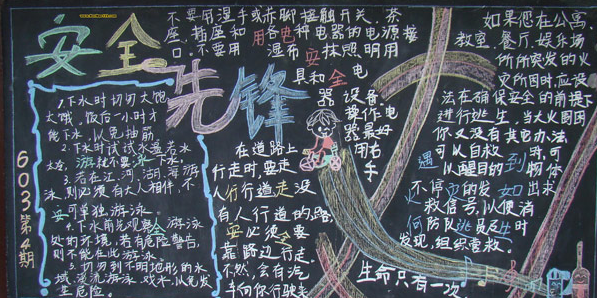 安全
先锋
603第4期
1.下水时切勿太饱
太饿。饭后一小时才
能下水，以免抽筋
2.下水时试试水温若水
太冷，游就不要泳下水，
3.若在江、河、湖、海游
泳，则必须有大人相伴，不
安可单独游泳。
4.下水前先观察全游泳
处的环境，若有危险警告，
则不能在此游泳。
5.切勿到不明地形的水
域、漂流游泳、戏水，以免发
生危险。
不要用湿手或赤脚接触开关、茶
座、插座和用各台种电器的电源接
口。不要用湿布安抹照明用
具和全电
器设备。
操作电
器最好
用右
手
在道路上
行走时，要走
人行行道走没
有人行道的路，
安必须全要
靠路边行走。
不然，会有汽
车向你行驶来
如果您在公寓、
教室、餐厅、娱乐场
所所突发的火
灾所困时，应设
法在确保安全的前提下
进行逃生，当大火围困
你又没有其它办法
遇可以自救到时，可
以醒目的物体
不停页的发如出求
救信号，以便消
何防队逃员及生时
发现，组织营救。
生命只有一次